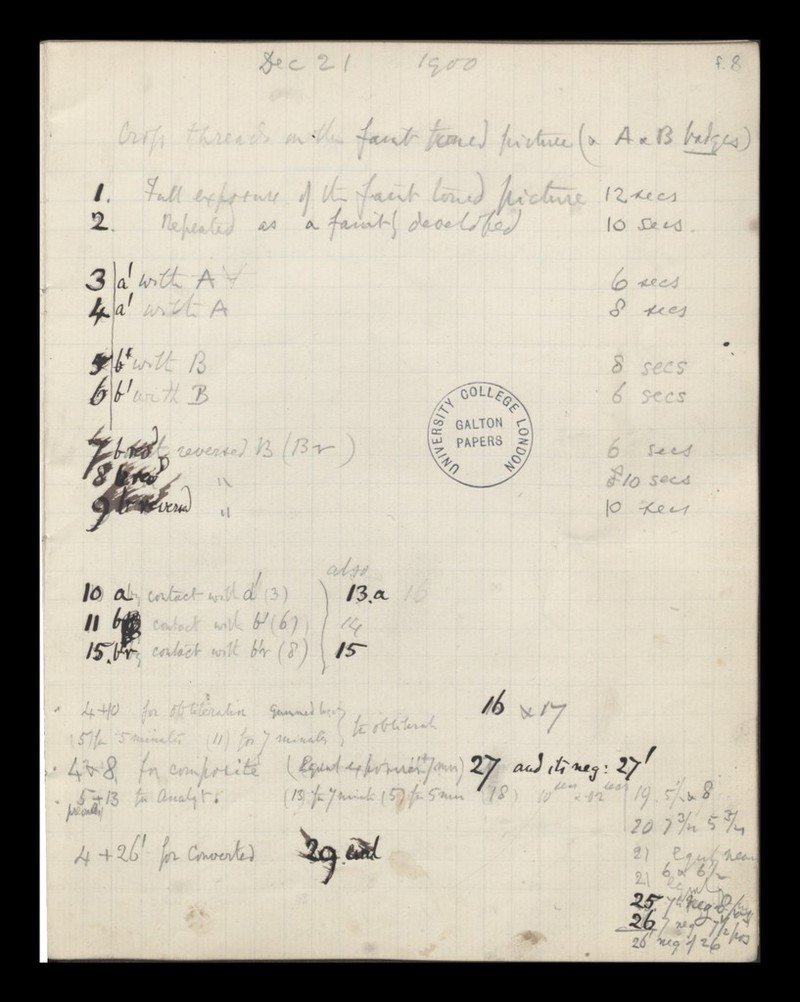 Dec 21 1900
f.8
Crop threads on the faint toned picture (& A & B badges)
1. Full exposure of the faint toned picture 12 secs
2. Repeated as a faintly developed 10 secs.
3 a' with A 6 secs
4 a' with A 8 secs
5 b' with B 8 secs
6 b' with B 6 secs
UNIVERSITY COLLEGE LONDON
GALTON PAPERS
7 reversed B (Br) 6 secs
8 " 10 secs
9 b reversed " 10 secs
also
10 a by contact with a' (3) 13.a 16
11 b contact with b' (6) 14
15. br by contact with b'r (8) 15
4+10 for obliteration 16 & 17
5 for 5 minutes (11) for 7 minutes to obliterate
4 & 8 for composite (Equal exposures 7 min) 27 and its neg: 27'
5+13 for Analysis (13) for 7 minutes (5) for 5 min (18) 10 secs 12 secs
19. 5 & 8
20 7 3/4 5 3/4
21
6 & 6 1/2
21
4 + 26' for Converted 29 and
25 7 neg 8
26 7 neg 7 1/2 pos
26' neg of 26